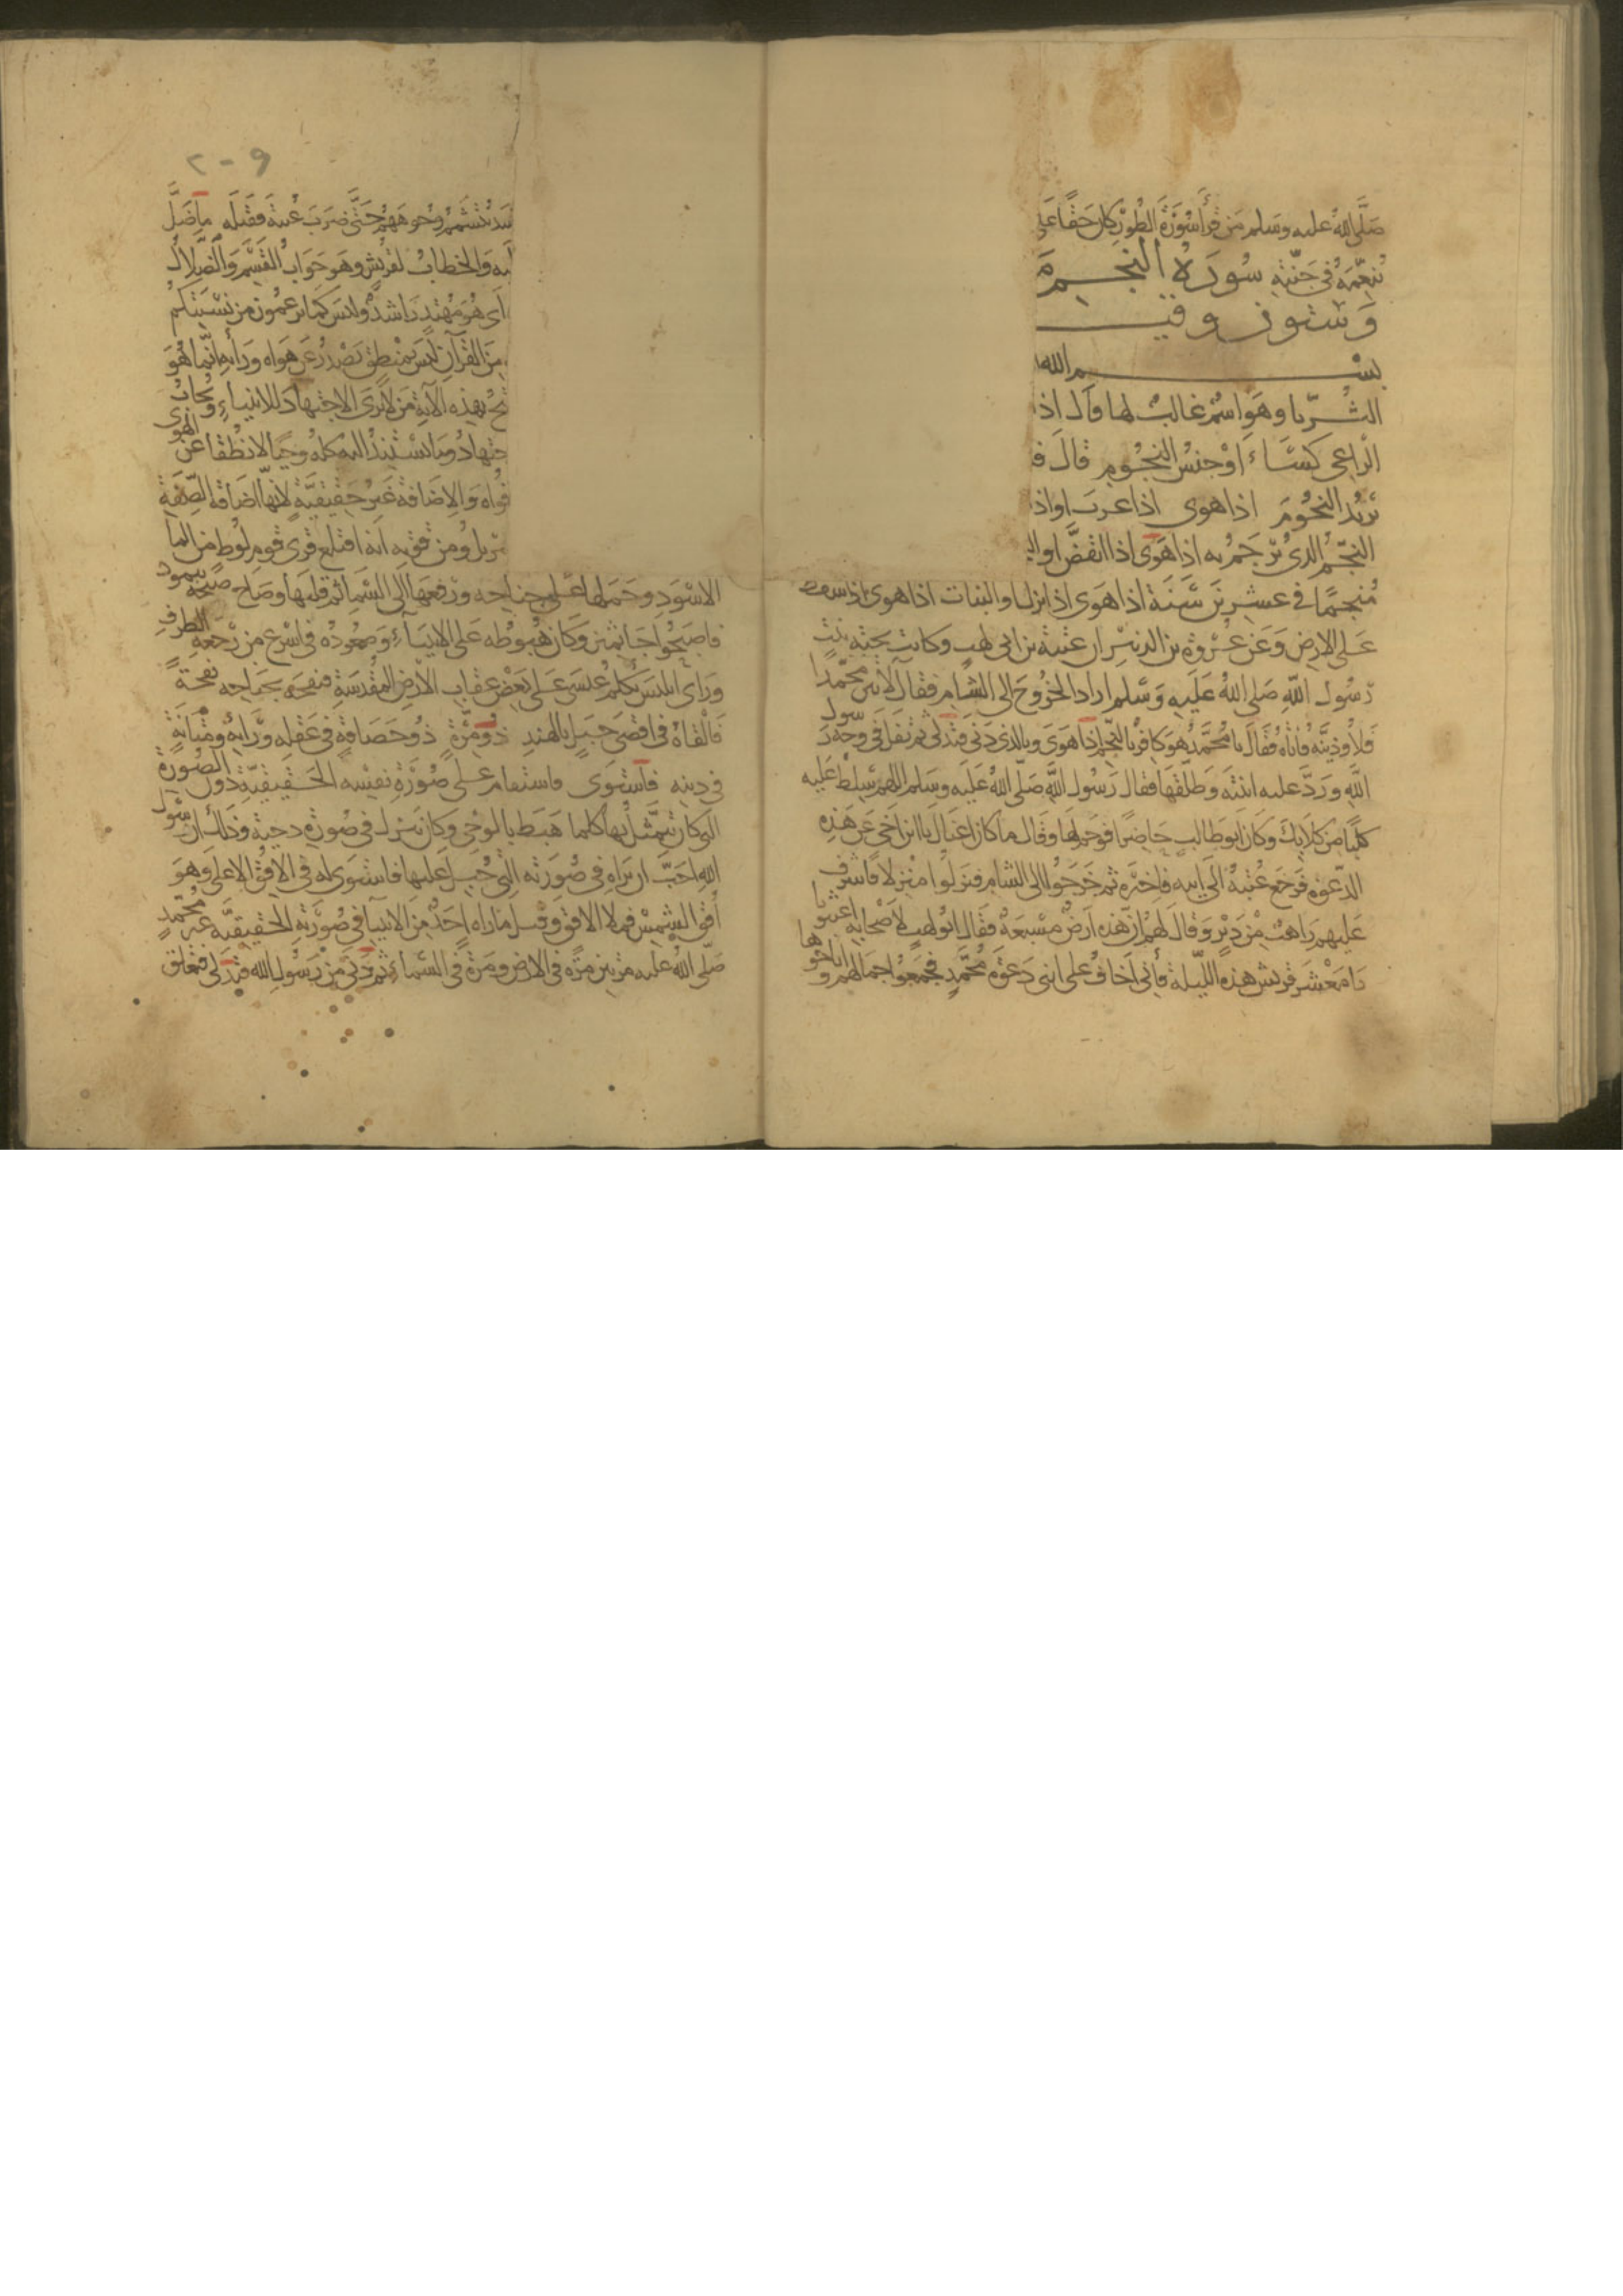 صَلَّى اللهُ عليه وسَلم مَن قرأ سُوْرَةَ الطُوْر كان حَقًا عَلى
نُنعّمَهُ فى جَنّتِهِ سُورَةُ النجـــم
وَستون وفيـــــ
بســـــــم الله
الثُــرّيا وهَو اسْمٌ غالبٌ لها قال اذا
الرّاعى كسَاءَ اوْ جنسُ النجُوم قال ف
يُريْدُ النجُومَ اذا هوى اذا غربَ او اذ
النجّمُ الذى يُرْجَمُ به اذا هَوَى اذا انقضَّ او ال
مُنجمًا فى عشرين سَنَة اذا هَوى اذا نزل او النبات اذا هوى اذا سقط
عَلى الارض وَعَن عُرْوة بن الزبير ان عتبة بن ابى لهب وكانت تحته بنت
رسُول اللّهِ صَلى اللهُ عَليهِ وَسَلم اراد الخرُوجَ الى الشام فقال لآتين محمّدا
فَلأُوذينَّه فأتاه فقَالَ يا مُحمّدُ هُوَ كافرٌ بالنجْم اذا هَوَى وبالذى دَنى فتدَلى ثم تفل فى وجه رسول
اللّهِ وَرَدَّ عليه ابنتَه وَطلّقها فقال رَسُول اللّهِ صَلّى اللهُ عَليَه وسَلم اللهم سَلطْ عَليه
كلبًا من كلابكَ وكان ابو طالب حاضرًا فوَجمَ لها وقال ما كان اغناكَ يا ابن اخى عَن هَذِه
الدّعْوَة فرَجعَ عُتبةُ الى ابيه فاخبَره ثم خَرَجُوا الى الشام فنزلوا منزلا فاشرف
عَليهم رَاهبٌ من دَيْرٍ وَقالَ لهُم ان هذه ارضٌ مسْبعةٌ فقَال ابو لهبٍ لاصْحابِه اغيثونا
يا مَعْشَر قريش هذه الليْلة فانى اخَافُ على ابنى دَعْوَة مُحمّدٍ فجَمعُوا جمالهم واناخوها
يتشمّمُ وجُوهَهُمْ حَتّى ضرَبَ عُتبة فقتَله ما ضَلَّ
وَالخطابُ لقريش وهَو جَوابُ القسَم وَالضّلالُ
اى هُوَ مُهْتدٍ رَاشدٌ وليسَ كما تزعمُون من نسْبتكم
من القرآنِ ليسَ بمنطق يَصْدرُ عَن هَواه ورَأيه انّما هُوَ
بهذِه الآيةِ من لا يَرى الاجتهادَ للانبياءِ ويُجابُ
جتهادُ وما يسْتنِدُ اليه كلهُ وحيًا لا نطْقًا عن الهوى
قُواه وَالاضافة غَيرُ حَقيقيَّةٍ لأنها اضَافة الصّفةِ
ومن قوّته انه اقتلع قُرَى قوم لوط من الماء
الاسْوَد وحَمَلها عَلى جناحه ورَفعَها الى السّماءِ ثم قلبَها وصَاح صَيْحة بثمود
فاصبَحُوا جَاثمين وَكان هُبوطُه عَلى الانبيَاءِ وَصعُودُه فى اسْرع من رَجْعةِ الطرف
وَرَاى ابليسَ يُكلمُ عيسَى عَلى بَعْض عقاب الارْض المقدّسَة فنفحَه بجَناحِه نفحَةً
فَالْقاه فى اقصَى جَبَل بالهند ذُو مِرَّةٍ ذُو حَصَافةٍ فى عَقلِه ورَأيِه ومَتَانَةٍ
فى دينِه فاسْتوَى فاستقام على صُوْرَةِ نفسه الحَقيقيّة دُونَ الصُورَة
التى كان يَتَمثّلُ بها كلما هَبَط بالوحى وكان يَنزل فى صُورة دحية وذلك ان رَسُول
اللهِ احَبَّ ان يَرَاهُ فى صُورَته التى جُبِلَ عليها فاسْتوى له فى الافُق الاعْلى وَهوَ
أفق الشمس فملأ الافق وقيل ما رَآه احَدٌ مِنَ الانبياء فى صُورَتِه الحَقيقيَّة غير محمّدٍ
صَلّى اللهُ عليه مَرّتين مرّة فى الارض ومَرّة فى السّماءِ ثمَّ دَنَى مِنْ رَسُولِ الله فتدلى فتعَلق